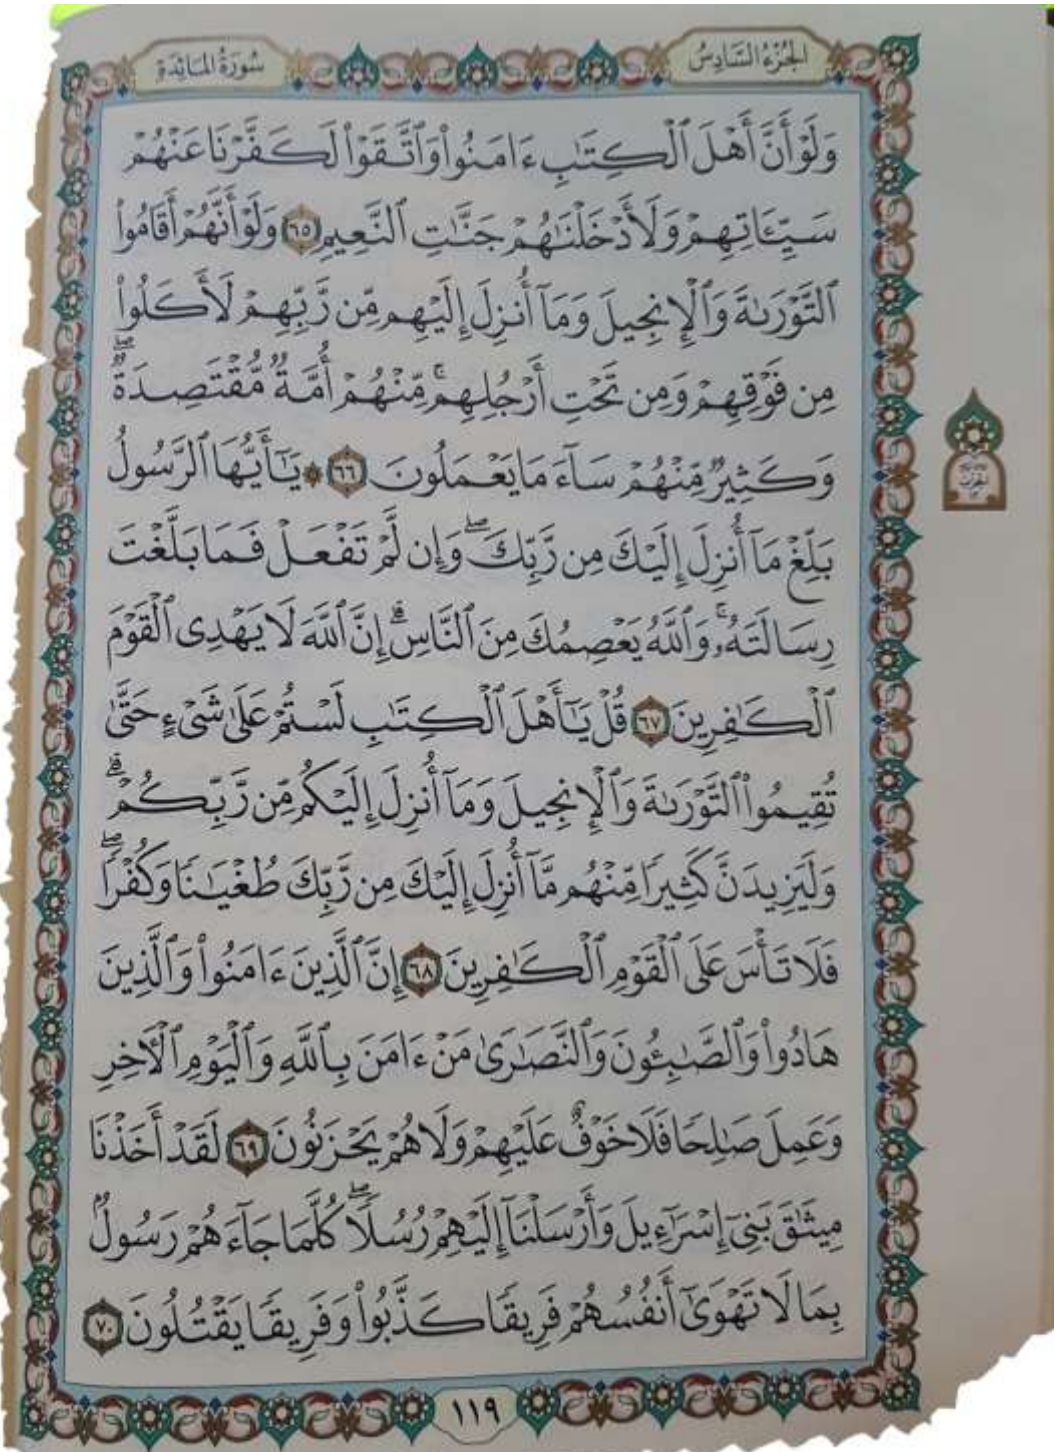 الجُزْءُ السَّادِسُ
سُورَةُ المَائِدَةِ
وَلَوْ أَنَّ أَهْلَ ٱلْكِتَٰبِ ءَامَنُوا۟ وَٱتَّقَوْا۟ لَكَفَّرْنَا عَنْهُمْ
سَيِّـَٔاتِهِمْ وَلَأَدْخَلْنَٰهُمْ جَنَّٰتِ ٱلنَّعِيمِ ٦٥ وَلَوْ أَنَّهُمْ أَقَامُوا۟
ٱلتَّوْرَىٰةَ وَٱلْإِنجِيلَ وَمَآ أُنزِلَ إِلَيْهِم مِّن رَّبِّهِمْ لَأَكَلُوا۟
مِن فَوْقِهِمْ وَمِن تَحْتِ أَرْجُلِهِم ۚ مِّنْهُمْ أُمَّةٌ مُّقْتَصِدَةٌ ۖ
وَكَثِيرٌ مِّنْهُمْ سَآءَ مَا يَعْمَلُونَ ٦٦ ۞ يَٰٓأَيُّهَا ٱلرَّسُولُ
بَلِّغْ مَآ أُنزِلَ إِلَيْكَ مِن رَّبِّكَ ۖ وَإِن لَّمْ تَفْعَلْ فَمَا بَلَّغْتَ
رِسَالَتَهُۥ ۚ وَٱللَّهُ يَعْصِمُكَ مِنَ ٱلنَّاسِ ۗ إِنَّ ٱللَّهَ لَا يَهْدِى ٱلْقَوْمَ
ٱلْكَٰفِرِينَ ٦٧ قُلْ يَٰٓأَهْلَ ٱلْكِتَٰبِ لَسْتُمْ عَلَىٰ شَىْءٍ حَتَّىٰ
تُقِيمُوا۟ ٱلتَّوْرَىٰةَ وَٱلْإِنجِيلَ وَمَآ أُنزِلَ إِلَيْكُم مِّن رَّبِّكُمْ ۗ
وَلَيَزِيدَنَّ كَثِيرًا مِّنْهُم مَّآ أُنزِلَ إِلَيْكَ مِن رَّبِّكَ طُغْيَٰنًا وَكُفْرًا ۖ
فَلَا تَأْسَ عَلَى ٱلْقَوْمِ ٱلْكَٰفِرِينَ ٦٨ إِنَّ ٱلَّذِينَ ءَامَنُوا۟ وَٱلَّذِينَ
هَادُوا۟ وَٱلصَّٰبِـُٔونَ وَٱلنَّصَٰرَىٰ مَنْ ءَامَنَ بِٱللَّهِ وَٱلْيَوْمِ ٱلْـَٔاخِرِ
وَعَمِلَ صَٰلِحًا فَلَا خَوْفٌ عَلَيْهِمْ وَلَا هُمْ يَحْزَنُونَ ٦٩ لَقَدْ أَخَذْنَا
مِيثَٰقَ بَنِىٓ إِسْرَٰٓءِيلَ وَأَرْسَلْنَآ إِلَيْهِمْ رُسُلًا ۖ كُلَّمَا جَآءَهُمْ رَسُولٌۢ
بِمَا لَا تَهْوَىٰٓ أَنفُسُهُمْ فَرِيقًا كَذَّبُوا۟ وَفَرِيقًا يَقْتُلُونَ ٧٠
١١٩